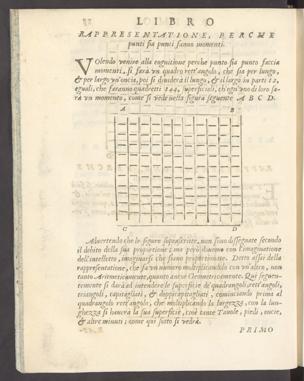 LIBRO
RAPPRESENTATIONE, PERCHE
punti sia punti fanno momenti.
Volendo venire alla cognitione perche punto sia punto faccia
momenti, si farà un quadro rett'angolo, che sia per lungo,
& per largo un'oncia, poi si dividerà il lungo, & il largo in parti 12,
eguali, che faranno quadretti 144, superficiali, ch'ogn'uno di loro sa-
rà un momento, come si vede nella figura seguente A B C D.
A B
C D
Advertendo che le figure soprascritte, non sono dissegnate secondo
il debito della sua proportione; ma però si con l'imaginatione
dell'intelletto, imaginarsi che siano proportionate. Detto assai della
rappresentatione, che fa un numero multiplicandolo con un'altro, non
tanto Aritmeticamente, quanto ancor Geometricamente. Qui seguen-
temente si darà ad intendere le superficie de quadrangoli rett'angoli,
triangoli, capitagliati, & doppicapitagliati, cominciando prima al
quadrangolo rett'angolo, che moltiplicando la larghezza, con la lun-
ghezza si haverà la sua superficie, cioè tante Tavole, piedi, oncie,
& altre minuti, come qui sotto si vedrà.
PRIMO